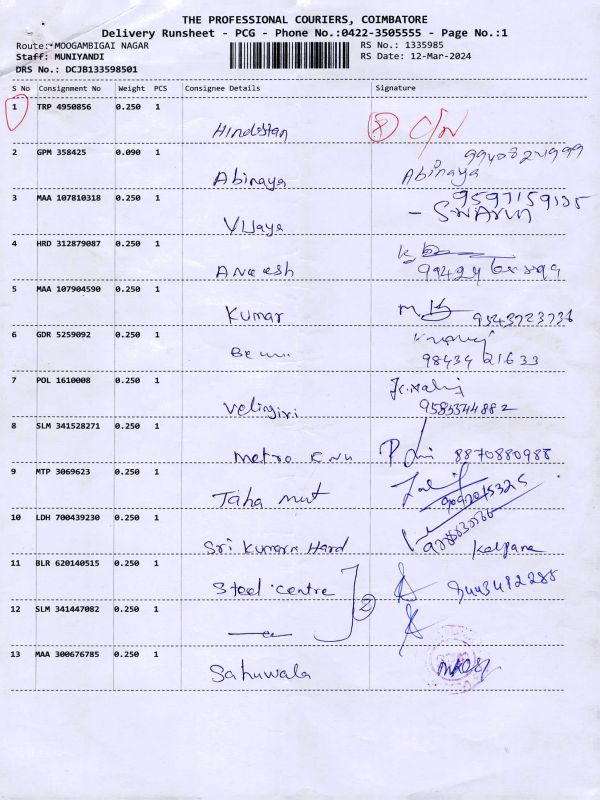 THE PROFESSIONAL COURIERS, COIMBATORE
Delivery Runsheet - PCG - Phone No.:0422-3505555 - Page No.:1
Route:*MOOGAMBIGAI NAGAR RS No.: 1335985
Staff: MUNIYANDI RS Date: 12-Mar-2024
DRS No.: DCJB133598501
S No Consignment No Weight PCS Consignee Details Signature
1 TRP 4950856 0.250 1
Hindustan 8 C/N
2 GPM 358425 0.090 1
Abinaya Abinaya
3 MAA 107810318 0.250 1
Vijaya
4 HRD 312879087 0.250 1
Aneesh
5 MAA 107904590 0.250 1
Kumar 9543723736
6 GDR 5259092 0.250 1
98434 21633
7 POL 1610008 0.250 1
Velingiri 9585544882
8 SLM 341528271 0.250 1
Metro 8870880988
9 MTP 3069623 0.250 1
Taha
10 LDH 700439230 0.250 1
Sri Kumaran Hard Kalpana
11 BLR 620140515 0.250 1
Steel centre 9443492288
2
12 SLM 341447082 0.250 1
13 MAA 300676785 0.250 1
Sahuwala